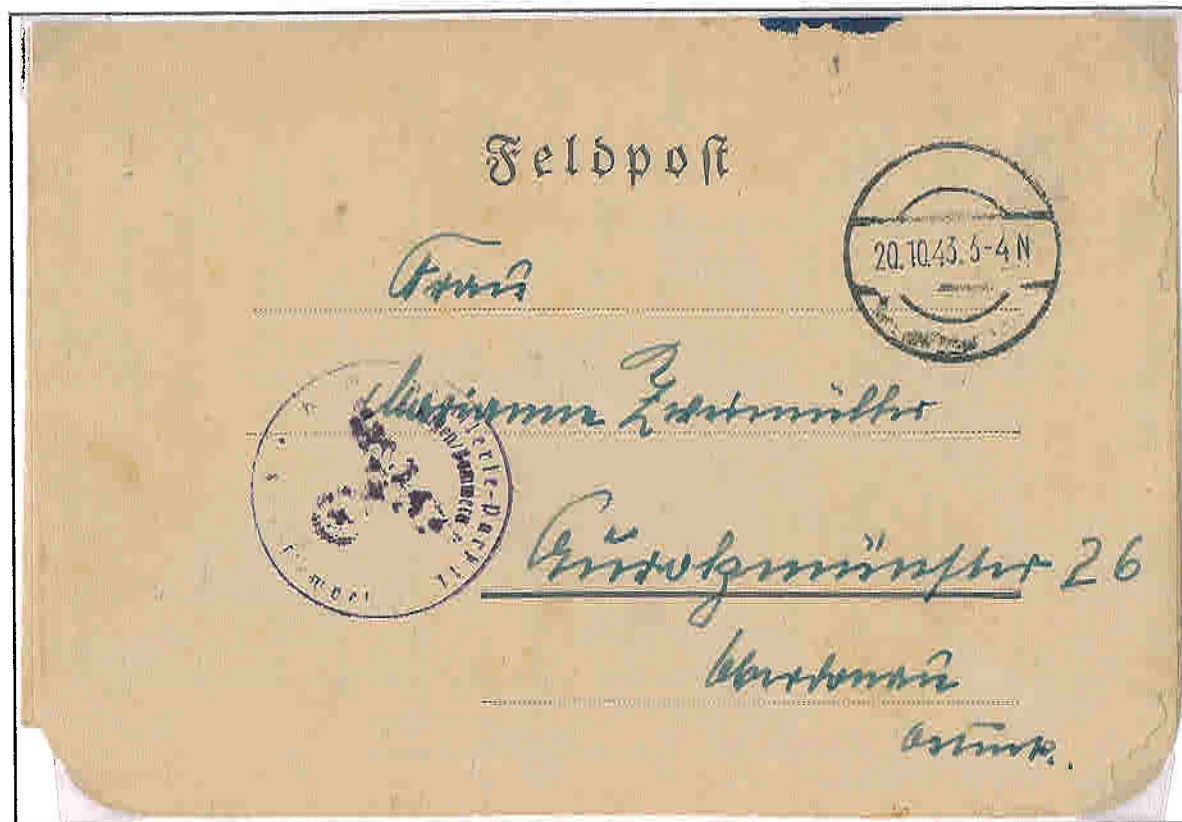 Feldpost
20.10.43. 3-4 N
Frau
Marianne Zweimüller
Aurolzmünster 26
Oberdonau